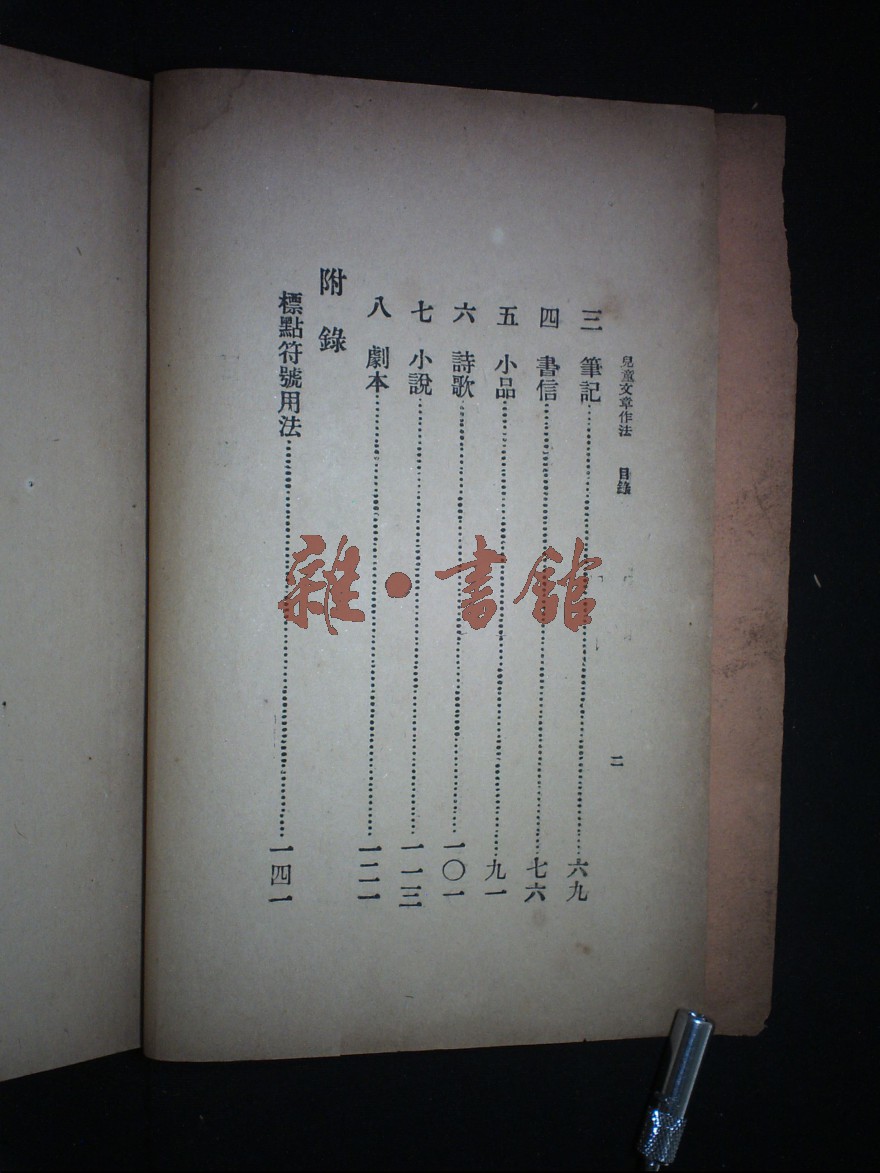 兒童文章作法 目錄 二
三 筆記……六九
四 書信……七六
五 小品……九一
六 詩歌……一〇一
七 小說……一一三
八 劇本……一二一
附錄
標點符號用法……一四一
雜·書館